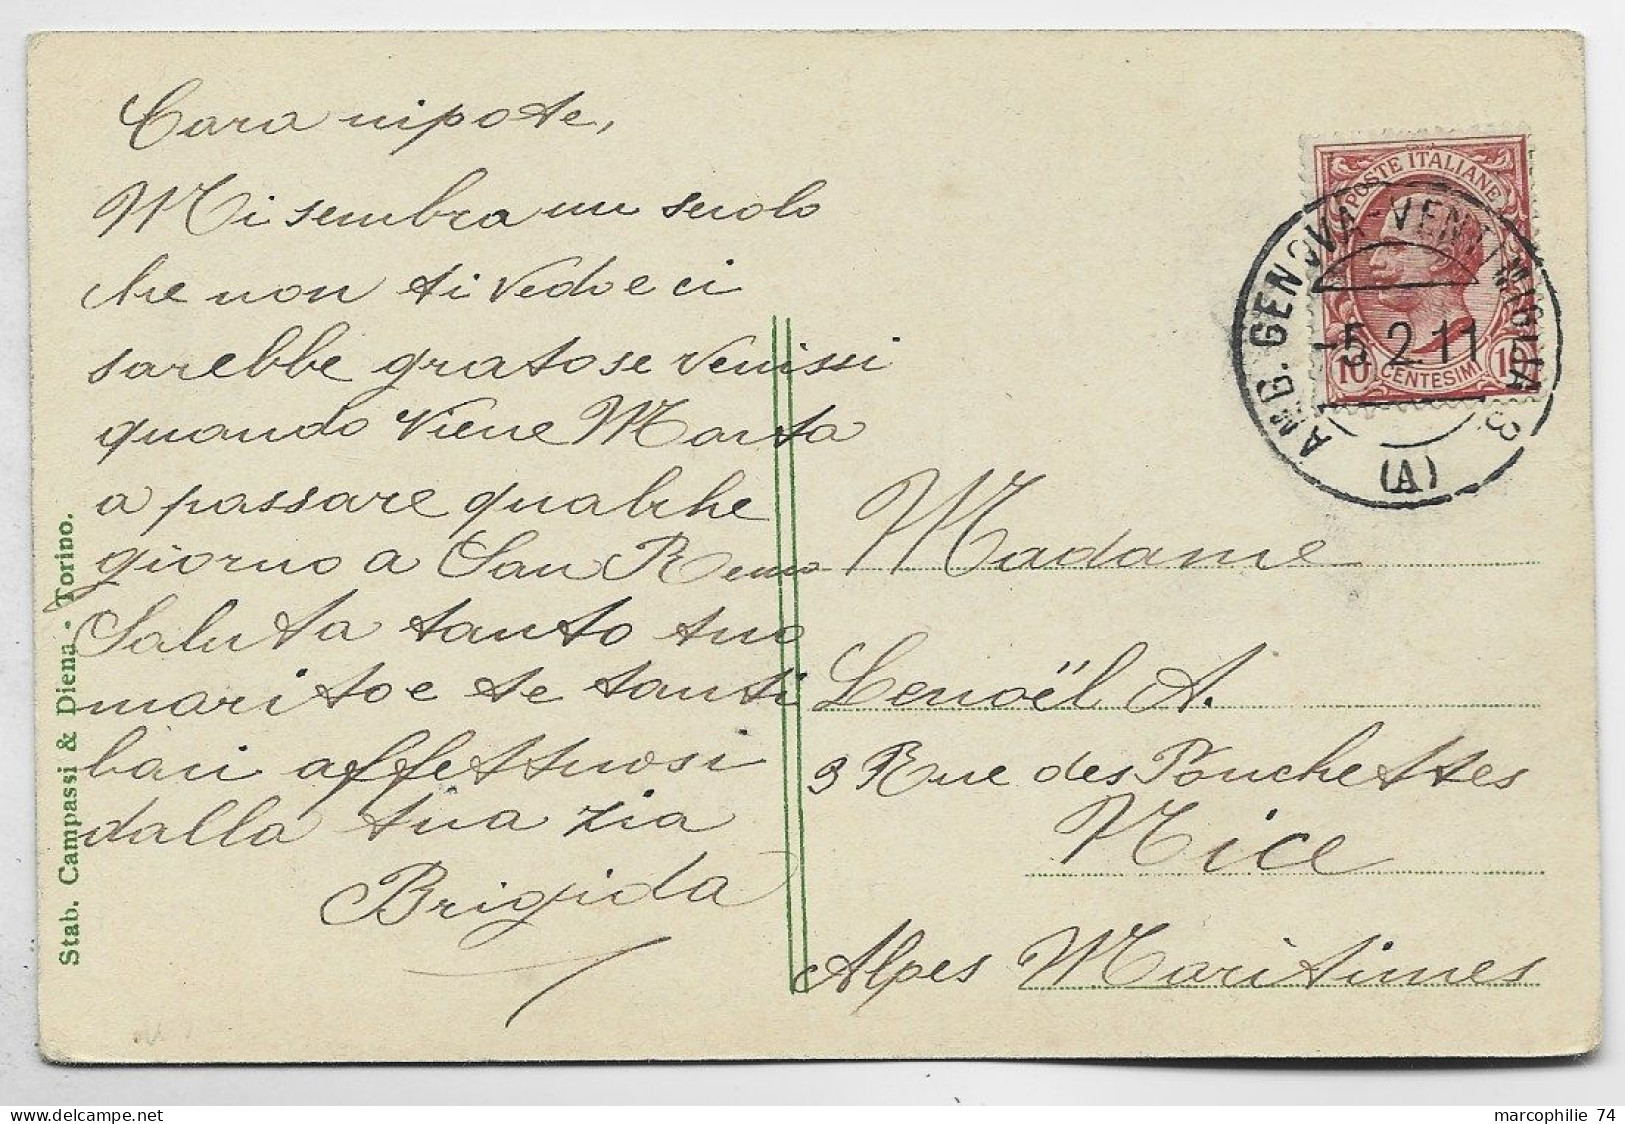 Cara nipote,
Mi sembra un secolo
che non ti vedo e ci
sarebbe grato se venissi
quando viene Marta
a passare qualche
giorno a San Remo
Saluta tanto tuo
marito e te tanti
baci affettuosi
dalla tua zia
Brigida
Stab. Campassi & Diena - Torino.
POSTE ITALIANE
10 CENTESIMI 10
AMB. GENOVA-VENTIMIGLIA
-5.2.11
(A)
Madame
Lenoël A.
3 Rue des Ponchettes
Nice
Alpes Maritimes
marcophilie 74